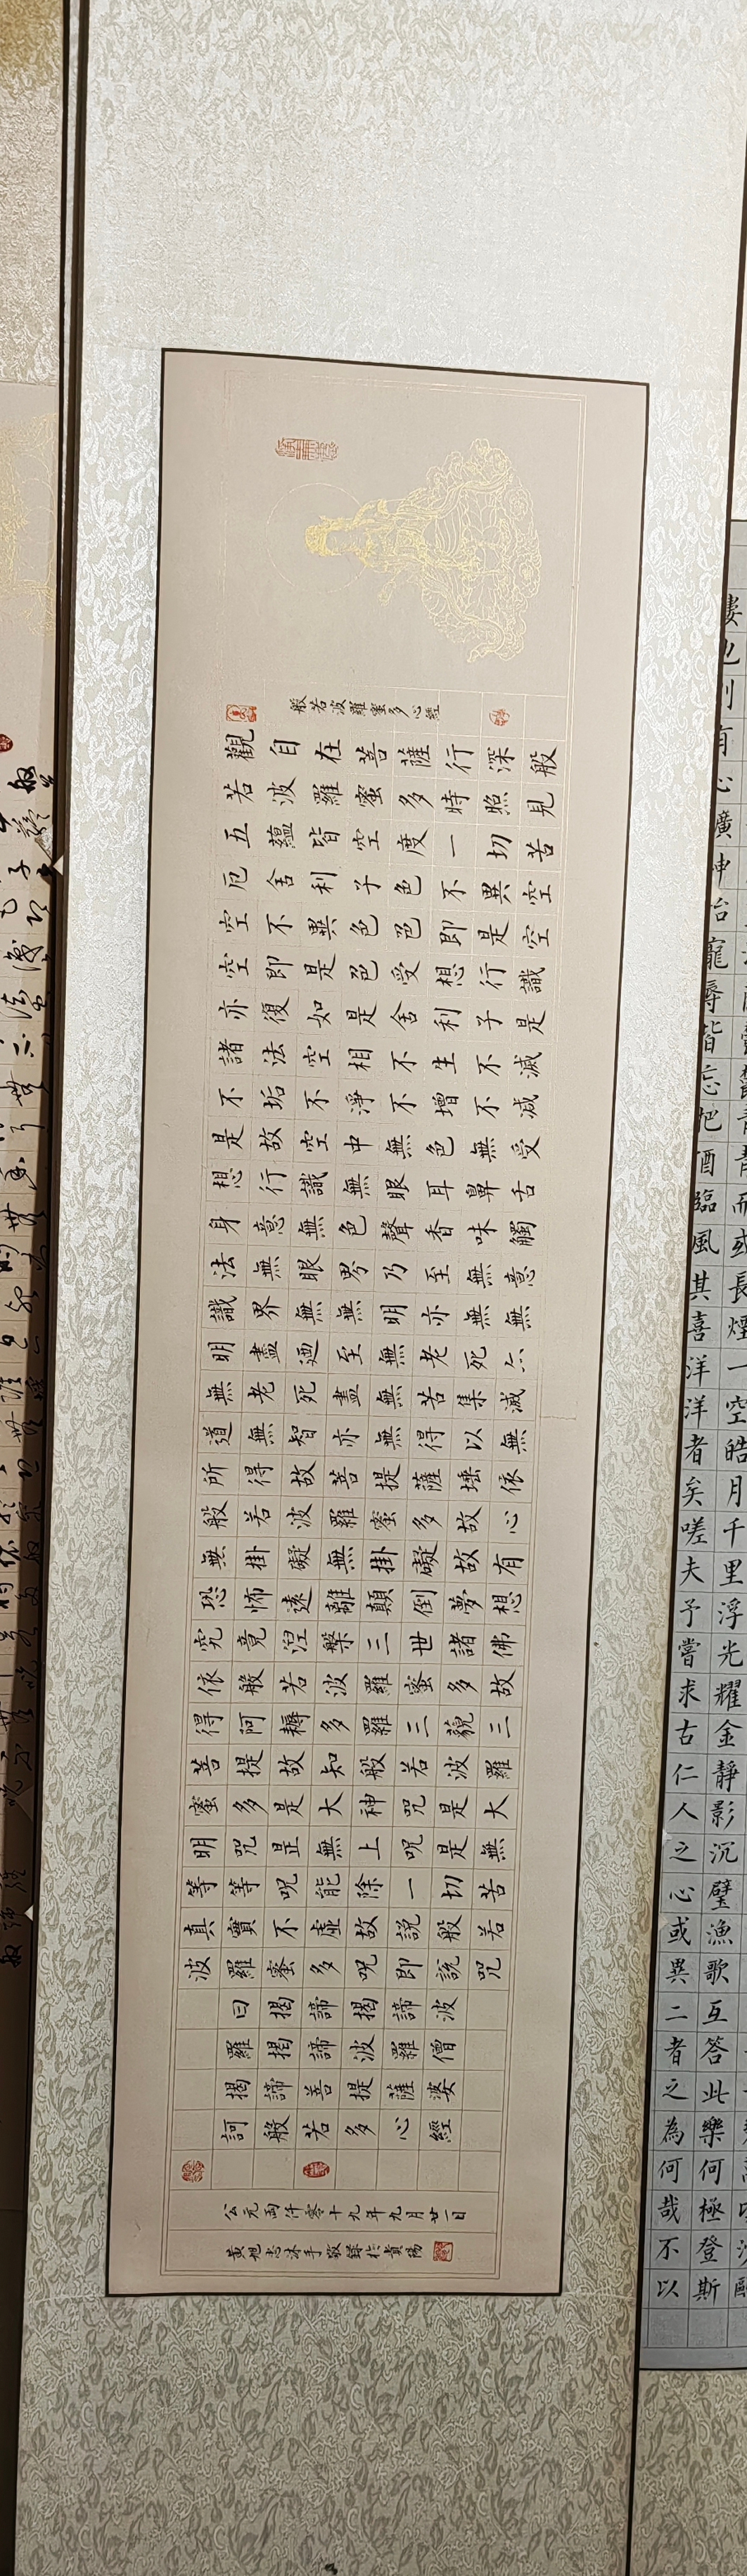 般若波羅蜜多心經
觀自在菩薩行深般
若波羅蜜多時照見
五蘊皆空度一切苦
厄舍利子色不異空
空不異色色即是空
空即是色受想行識
亦復如是舍利子是
諸法空相不生不滅
不垢不淨不增不減
是故空中無色無受
想行識無眼耳鼻舌
身意無色聲香味觸
法無眼界乃至無意
識界無無明亦無無
明盡廼至無老死亦
無老死盡無苦集滅
道無智亦無得以無
所得故菩提薩埵依
般若波羅蜜多故心
無掛礙無掛礙故有
恐怖遠離顛倒夢想
究竟涅槃三世諸佛
依般若波羅蜜多故
得阿耨多羅三藐三
菩提故知般若波羅
蜜多是大神咒是大
明咒是無上呪是無
等等呪能除一切苦
真實不虛故說般若
波羅蜜多呪即說咒
曰揭諦揭諦波
羅揭諦波羅僧
揭諦菩提薩婆
訶般若多心經
公元兩仟零十九年九月廿一日
黃旭忠沐手敬錄於貞陽
而或長煙一空皓月千里浮光耀金靜影沉璧漁歌互答此樂何極登斯
樓也則有心曠神怡寵辱皆忘把酒臨風其喜洋洋者矣嗟夫予嘗求古仁人之心或異二者之為何哉不以